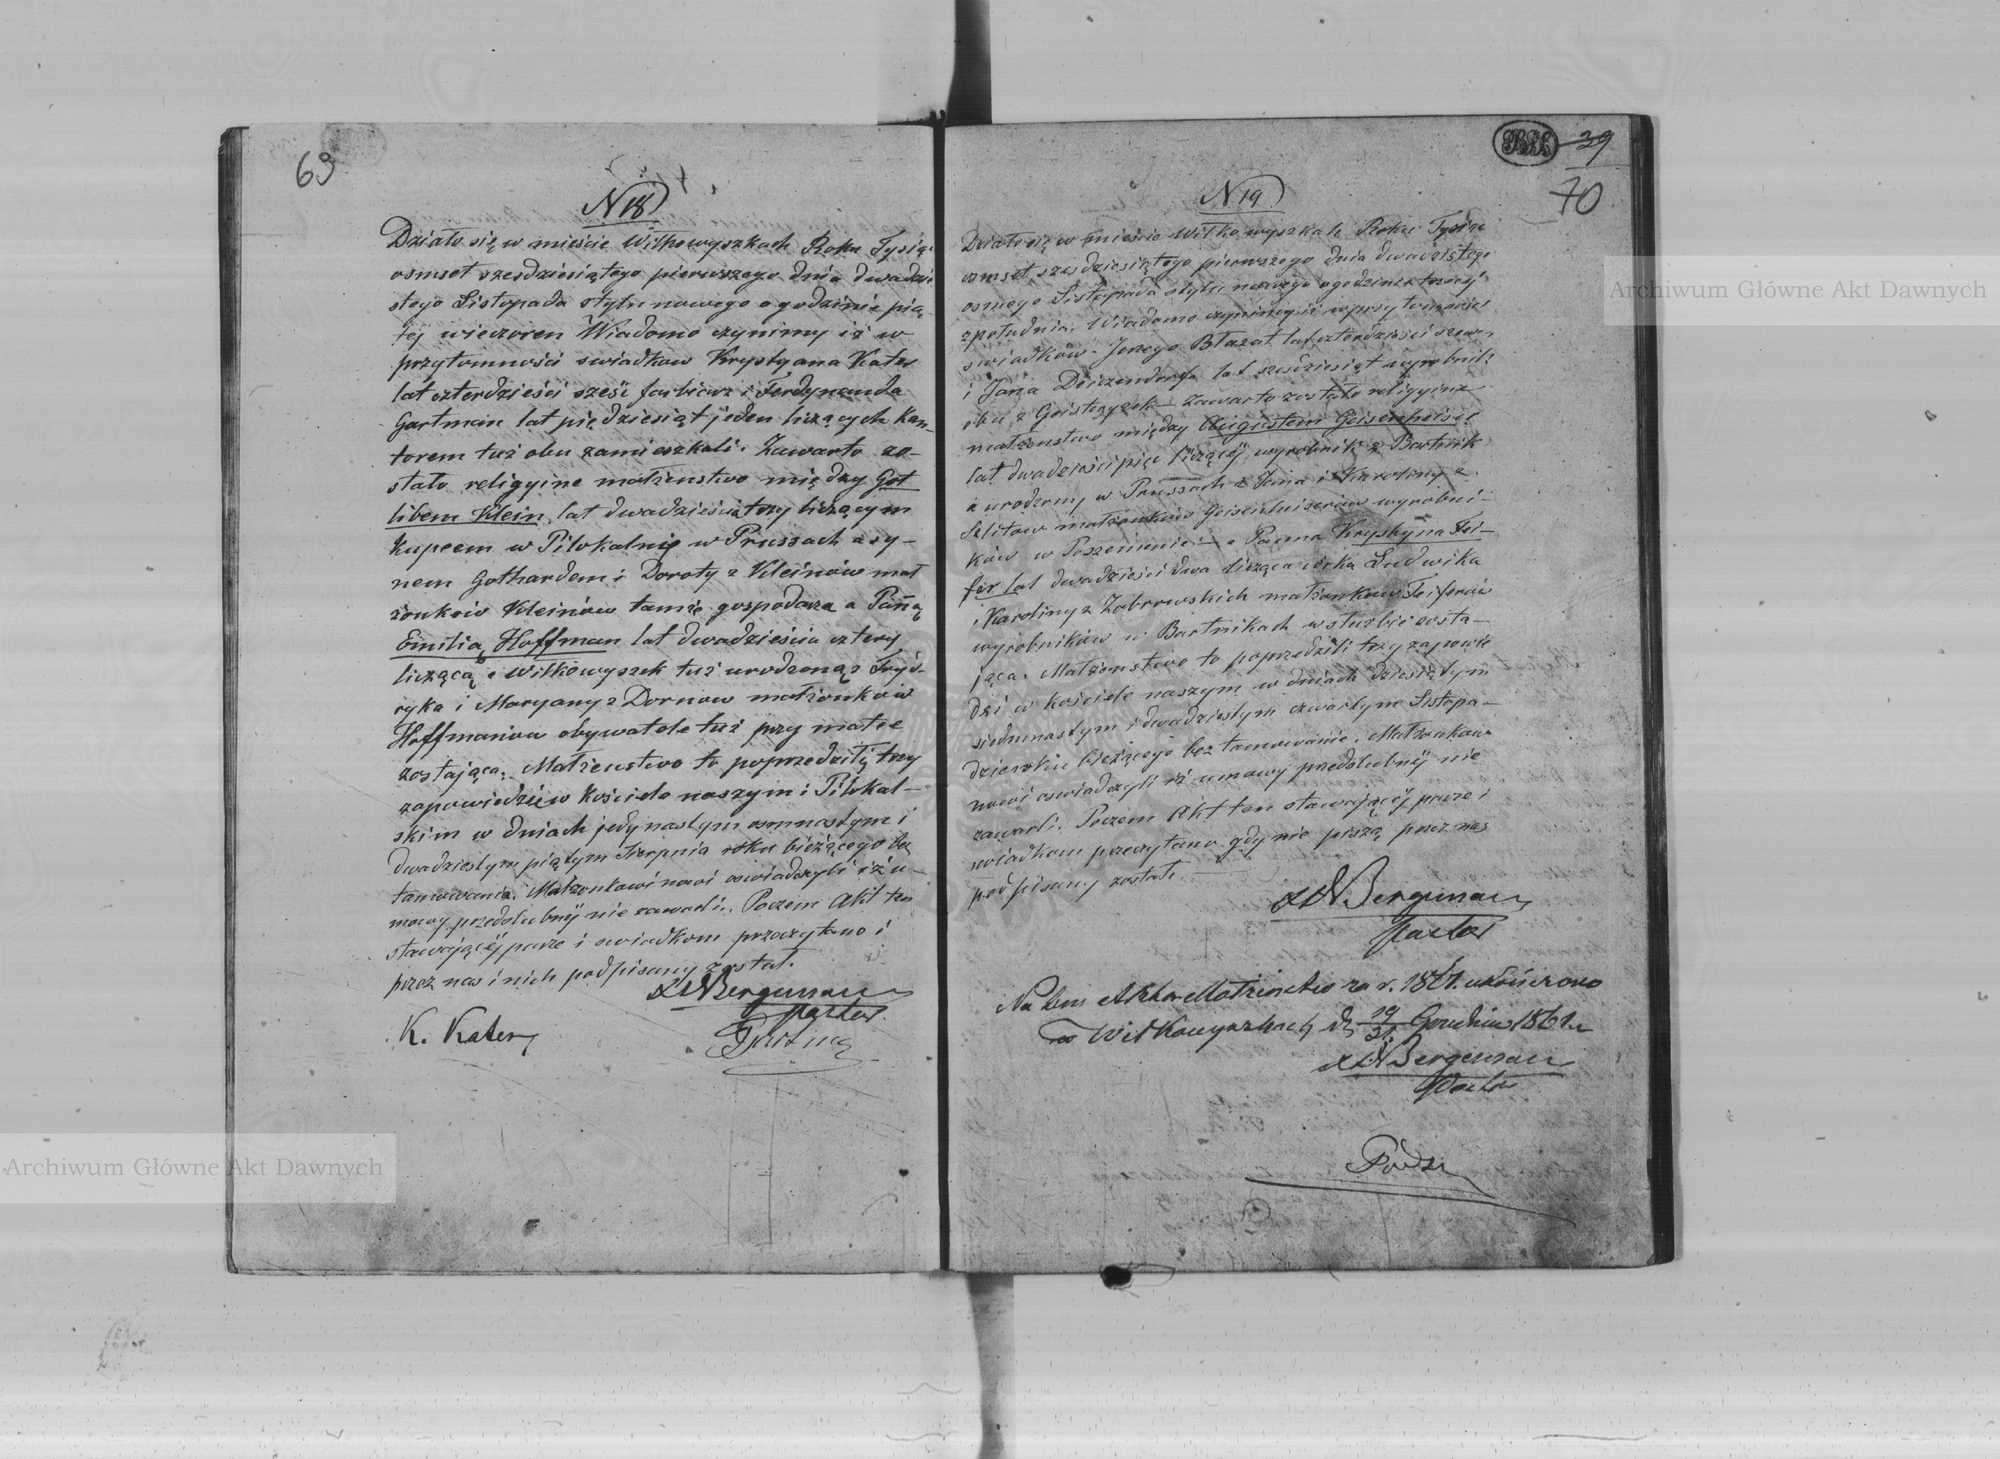 63
N 18
Działo się w mieście Wiłkowyszkach Roku Tysiąc
osmset szesdziesiątego pierwszego dnia dwadzie
stego Listopada stylu nowego o godzinie pią-
tej wieczorem Wiadomo czynimy iż w
przytomności swiadkow Krystyana Kater
lat czterdzieści sześć farbiarz i Ferdynanda
Gartman lat pięćdziesiąt jeden liczących kan-
torem tuż obu zamieszkali. Zawarto zo-
stało religyine małżenstwo między Got
libem Klein lat dwadzieścia trzy liczącym
Kupcem w Pilokalnie w Prussach a sy-
nem Gothardem i Doroty z Kleinów mał
żonkow Kleinów tamże gospodarza a Panną
Emilią Hoffman lat dwadzieścia cztery
liczącą z Wiłkowyszek tuż urodzoną z Fryd-
ryka i Maryany z Dornow małżonków
Hoffmanow obywatele tuż przy matce
zostająca. Małżenstwo to poprzedziły trzy
zapowiedzie w Kościele naszym i Pilokal-
skim w dniach jedynastym osmnastym i
dwadziestym piątym Sierpnia roku bieżącego bez
tamowania. Małżonkowi nowi oswiadczyli iż u-
mowy przedslubnéj nie zawarli. Poczem Akt ten
stawającéj parze i swiadkom przeczytano i
przez nas i nich podpisany został.
Bergmann
Pastor
K. Kater
Archiwum Główne Akt Dawnych
39
70
N 19
Działo się w mieście Wiłkowyszkach Roku Tysiąc
osmset szesdziesiątego pierwszego dnia dwadziestego
osmego Listopada stylu nowego o godzinie
z południa. Wiadomo czynimy iż w przytomności
swiadków Jerzego Błazat lat czterdzieści
i Jana lat szesdziesiąt wyrobnik
obu z zawarto zostało religyine
małżenstwo między Augustem Geisenheiser
lat dwadzieścia pięć liczącéj wyrobnik z Bartnik
a urodzony w Prussach z Jana i Karoliny z
małżonków Geisenheiserów wyrobni-
ków w a Panna Krystyna Fei-
fer lat dwadzieścia dwa licząca córka Ludwika
i Karoliny z Zabrowskich małżonkow Feiferów
wyrobników w Bartnikach w służbie zosta-
jąca. Małżenstwo to poprzedzili trzy zapowie
dzi w kościele naszym w dniach dziesiątym
siedmnastym i dwadziestym czwartym Listopa-
dzie roku bieżącego bez tamowanie. Małżonkow
nowi oswiadczyli iż umowy przedslubnéj nie
zawarli. Poczem Akt ten stawającéj parze i
swiadkom przeczytano gdy nie piszą przez nas
podpisany został.
Bergmann
Pastor
Na tem Aktów Małżeństw za r. 1861. ukończono
w Wiłkowyszkach d. 19/31 Grudnia 1861 r.
Bergmann
Pastor
Archiwum Główne Akt Dawnych